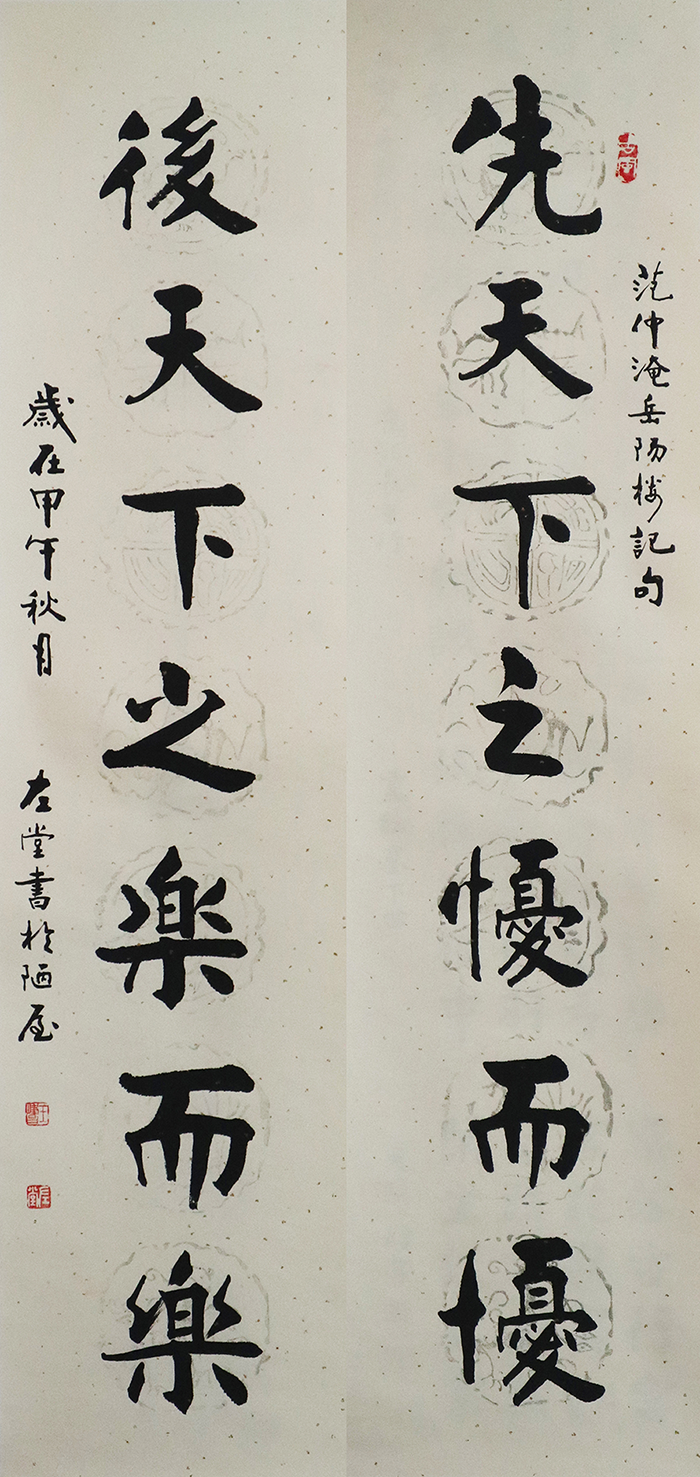 范仲淹岳阳楼記句
先天下之懮而懮
後天下之樂而樂
歲在甲午秋月
左堂書於陋屋